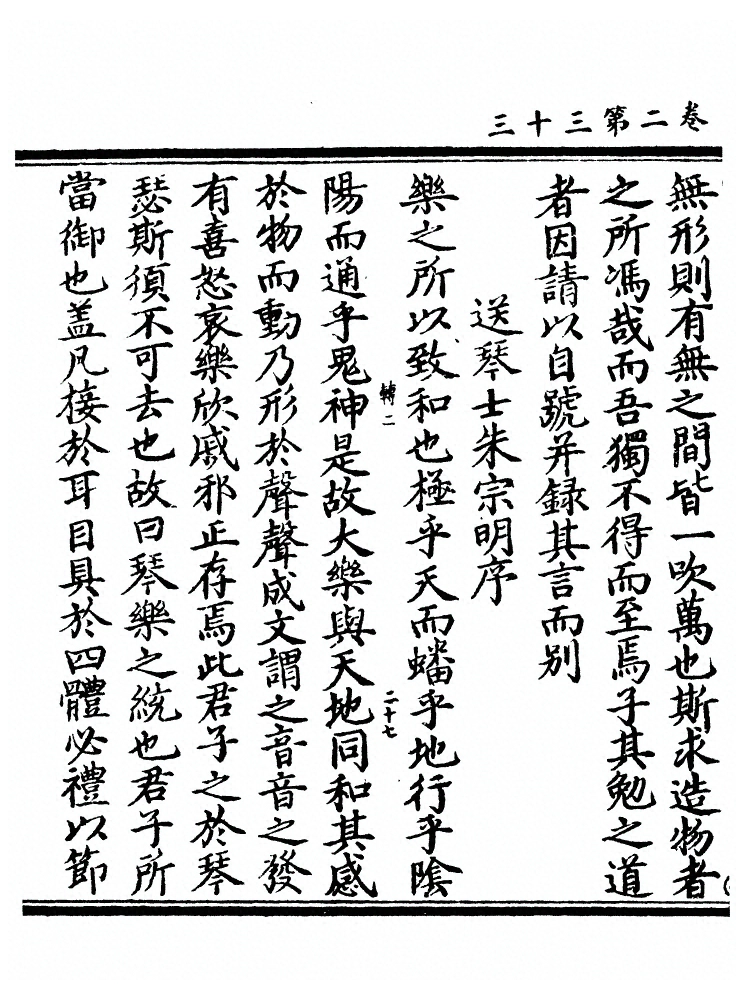 卷二第三十三
無形則有無之間皆一吹萬也斯求造物者
之所馮哉而吾獨不得而至焉子其勉之道
者因請以自號并録其言而别
送琴士朱宗明序
樂之所以致和也極乎天而蟠乎地行乎陰
轉二
二十七
陽而通乎鬼神是故大樂與天地同和其感
於物而動乃形於聲聲成文謂之音音之發
有喜怒哀樂欣戚邪正存焉此君子之於琴
瑟斯須不可去也故曰琴樂之統也君子所
當御也盖凡接於耳目具於四體必禮以節